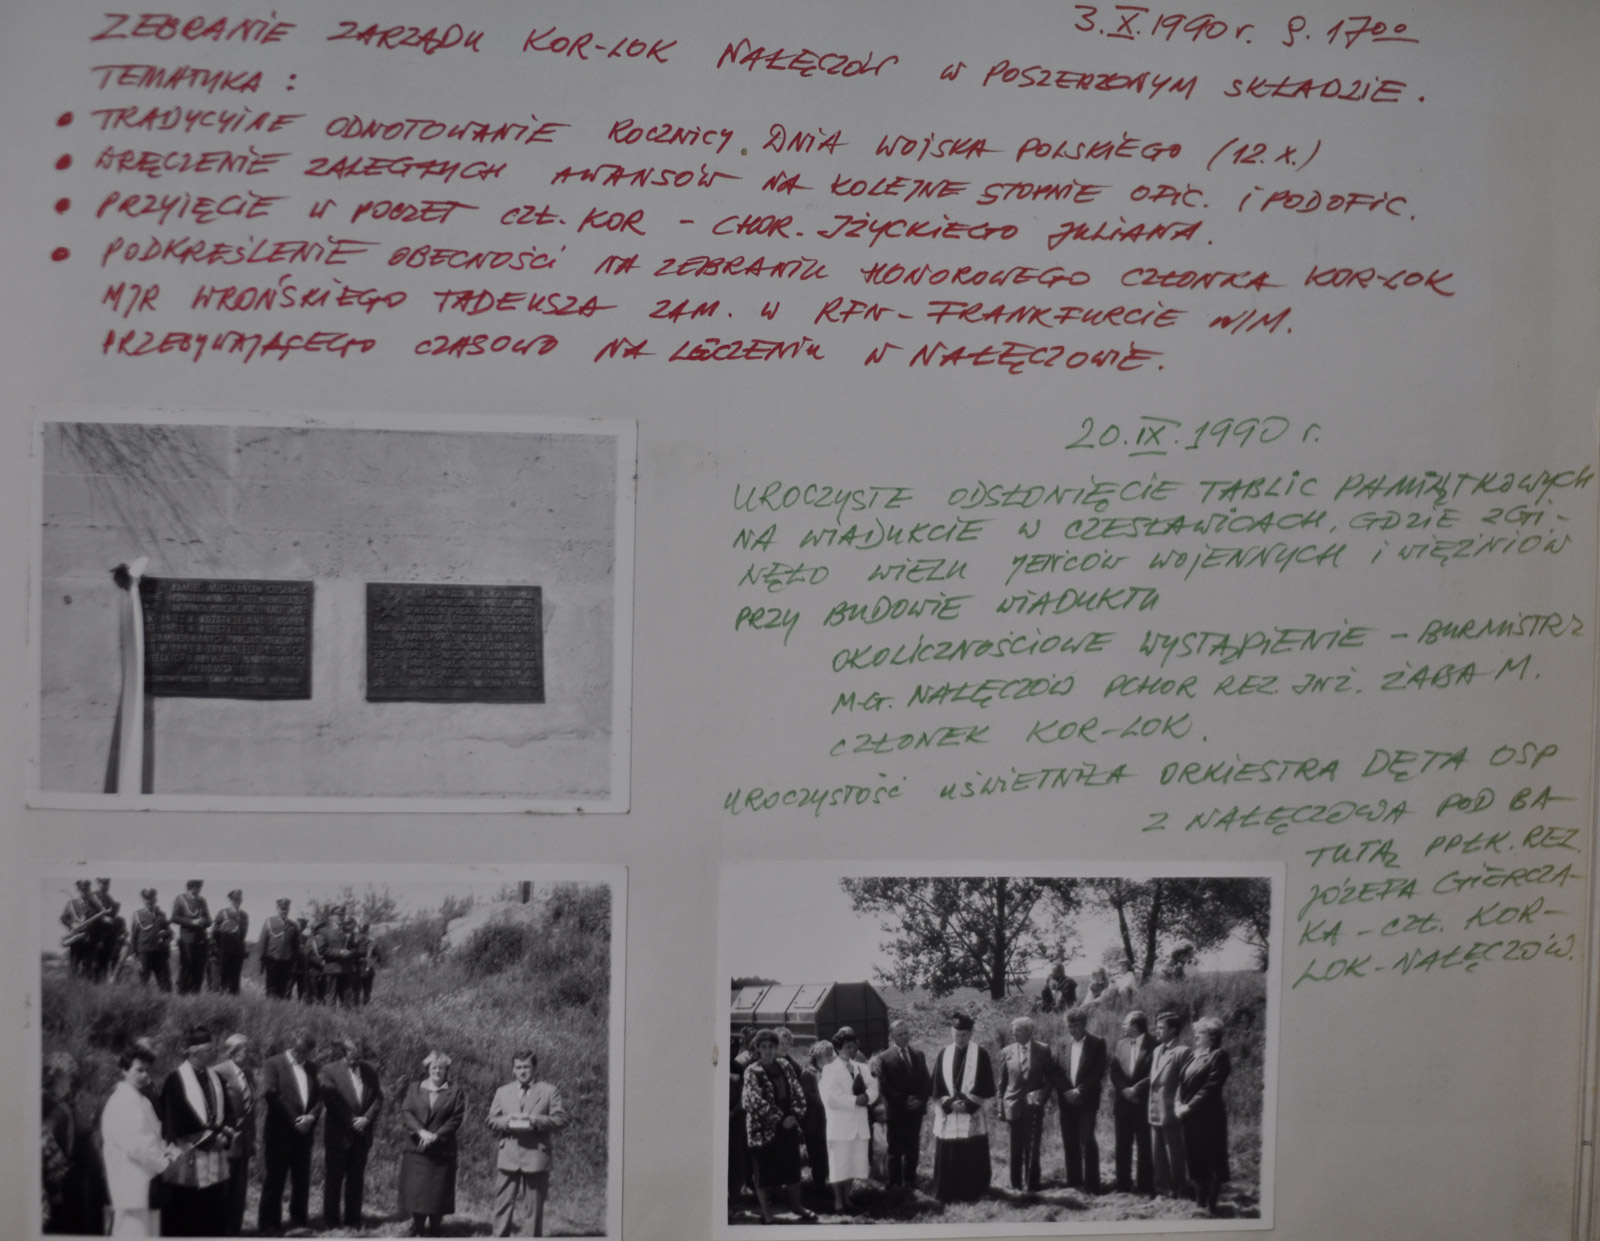 3.X.1990 r. g. 17oo
ZEBRANIE ZARZĄDU KOR-LOK NAŁĘCZÓW W POSZERZONYM SKŁADZIE.
TEMATYKA :
• TRADYCYJNE ODNOTOWANIE ROCZNICY DNIA WOJSKA POLSKIEGO (12.X.)
• WRĘCZENIE ZALEGŁYCH AWANSÓW NA KOLEJNE STOPNIE OFIC. I PODOFIC.
• PRZYJĘCIE W POCZET CZŁ. KOR - CHOR. JŻYCKIEGO JULIANA.
• PODKREŚLENIE OBECNOŚCI NA ZEBRANIU HONOROWEGO CZŁONKA KOR-LOK
MJR WROŃSKIEGO TADEUSZA ZAM. W RFN - FRANKFURCIE N/M.
PRZEBYWAJĄCEGO CZASOWO NA LECZENIU W NAŁĘCZOWIE.
20.IX.1990 r.
UROCZYSTE ODSŁONIĘCIE TABLIC PAMIĄTKOWYCH
NA WIADUKCIE W CZESŁAWICACH, GDZIE ZGI-
NĘŁO WIELU JEŃCÓW WOJENNYCH I WIĘŹNIÓW
PRZY BUDOWIE WIADUKTU
OKOLICZNOŚCIOWE WYSTĄPIENIE - BURMISTRZ
M-G. NAŁĘCZÓW PCHOR REZ. JNŻ. ŻABA M.
CZŁONEK KOR-LOK.
UROCZYSTOŚĆ UŚWIETNIŁA ORKIESTRA DĘTA OSP
Z NAŁĘCZOWA POD BA-
TUTĄ PPŁK. REZ.
JÓZEFA GIERCZA-
KA - CZŁ. KOR-
LOK - NAŁĘCZÓW.